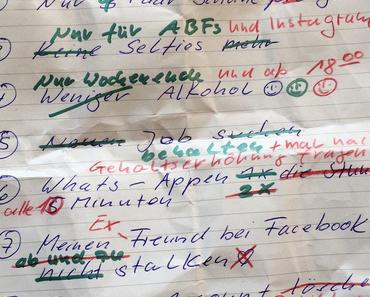 Paar
Nur für ABFs und Instagram
Keine Selfies mehr
Nur Wochenende und ab 18 00
Weniger Alkohol
5 Job suchen
behalten + mal
Gehaltserhöhung fragen
Whats-Appen 1x die Stun
2x
alle 10 Minuten
Ex
7 Meinen Freund bei Facebook
ab und zu
nicht stalken